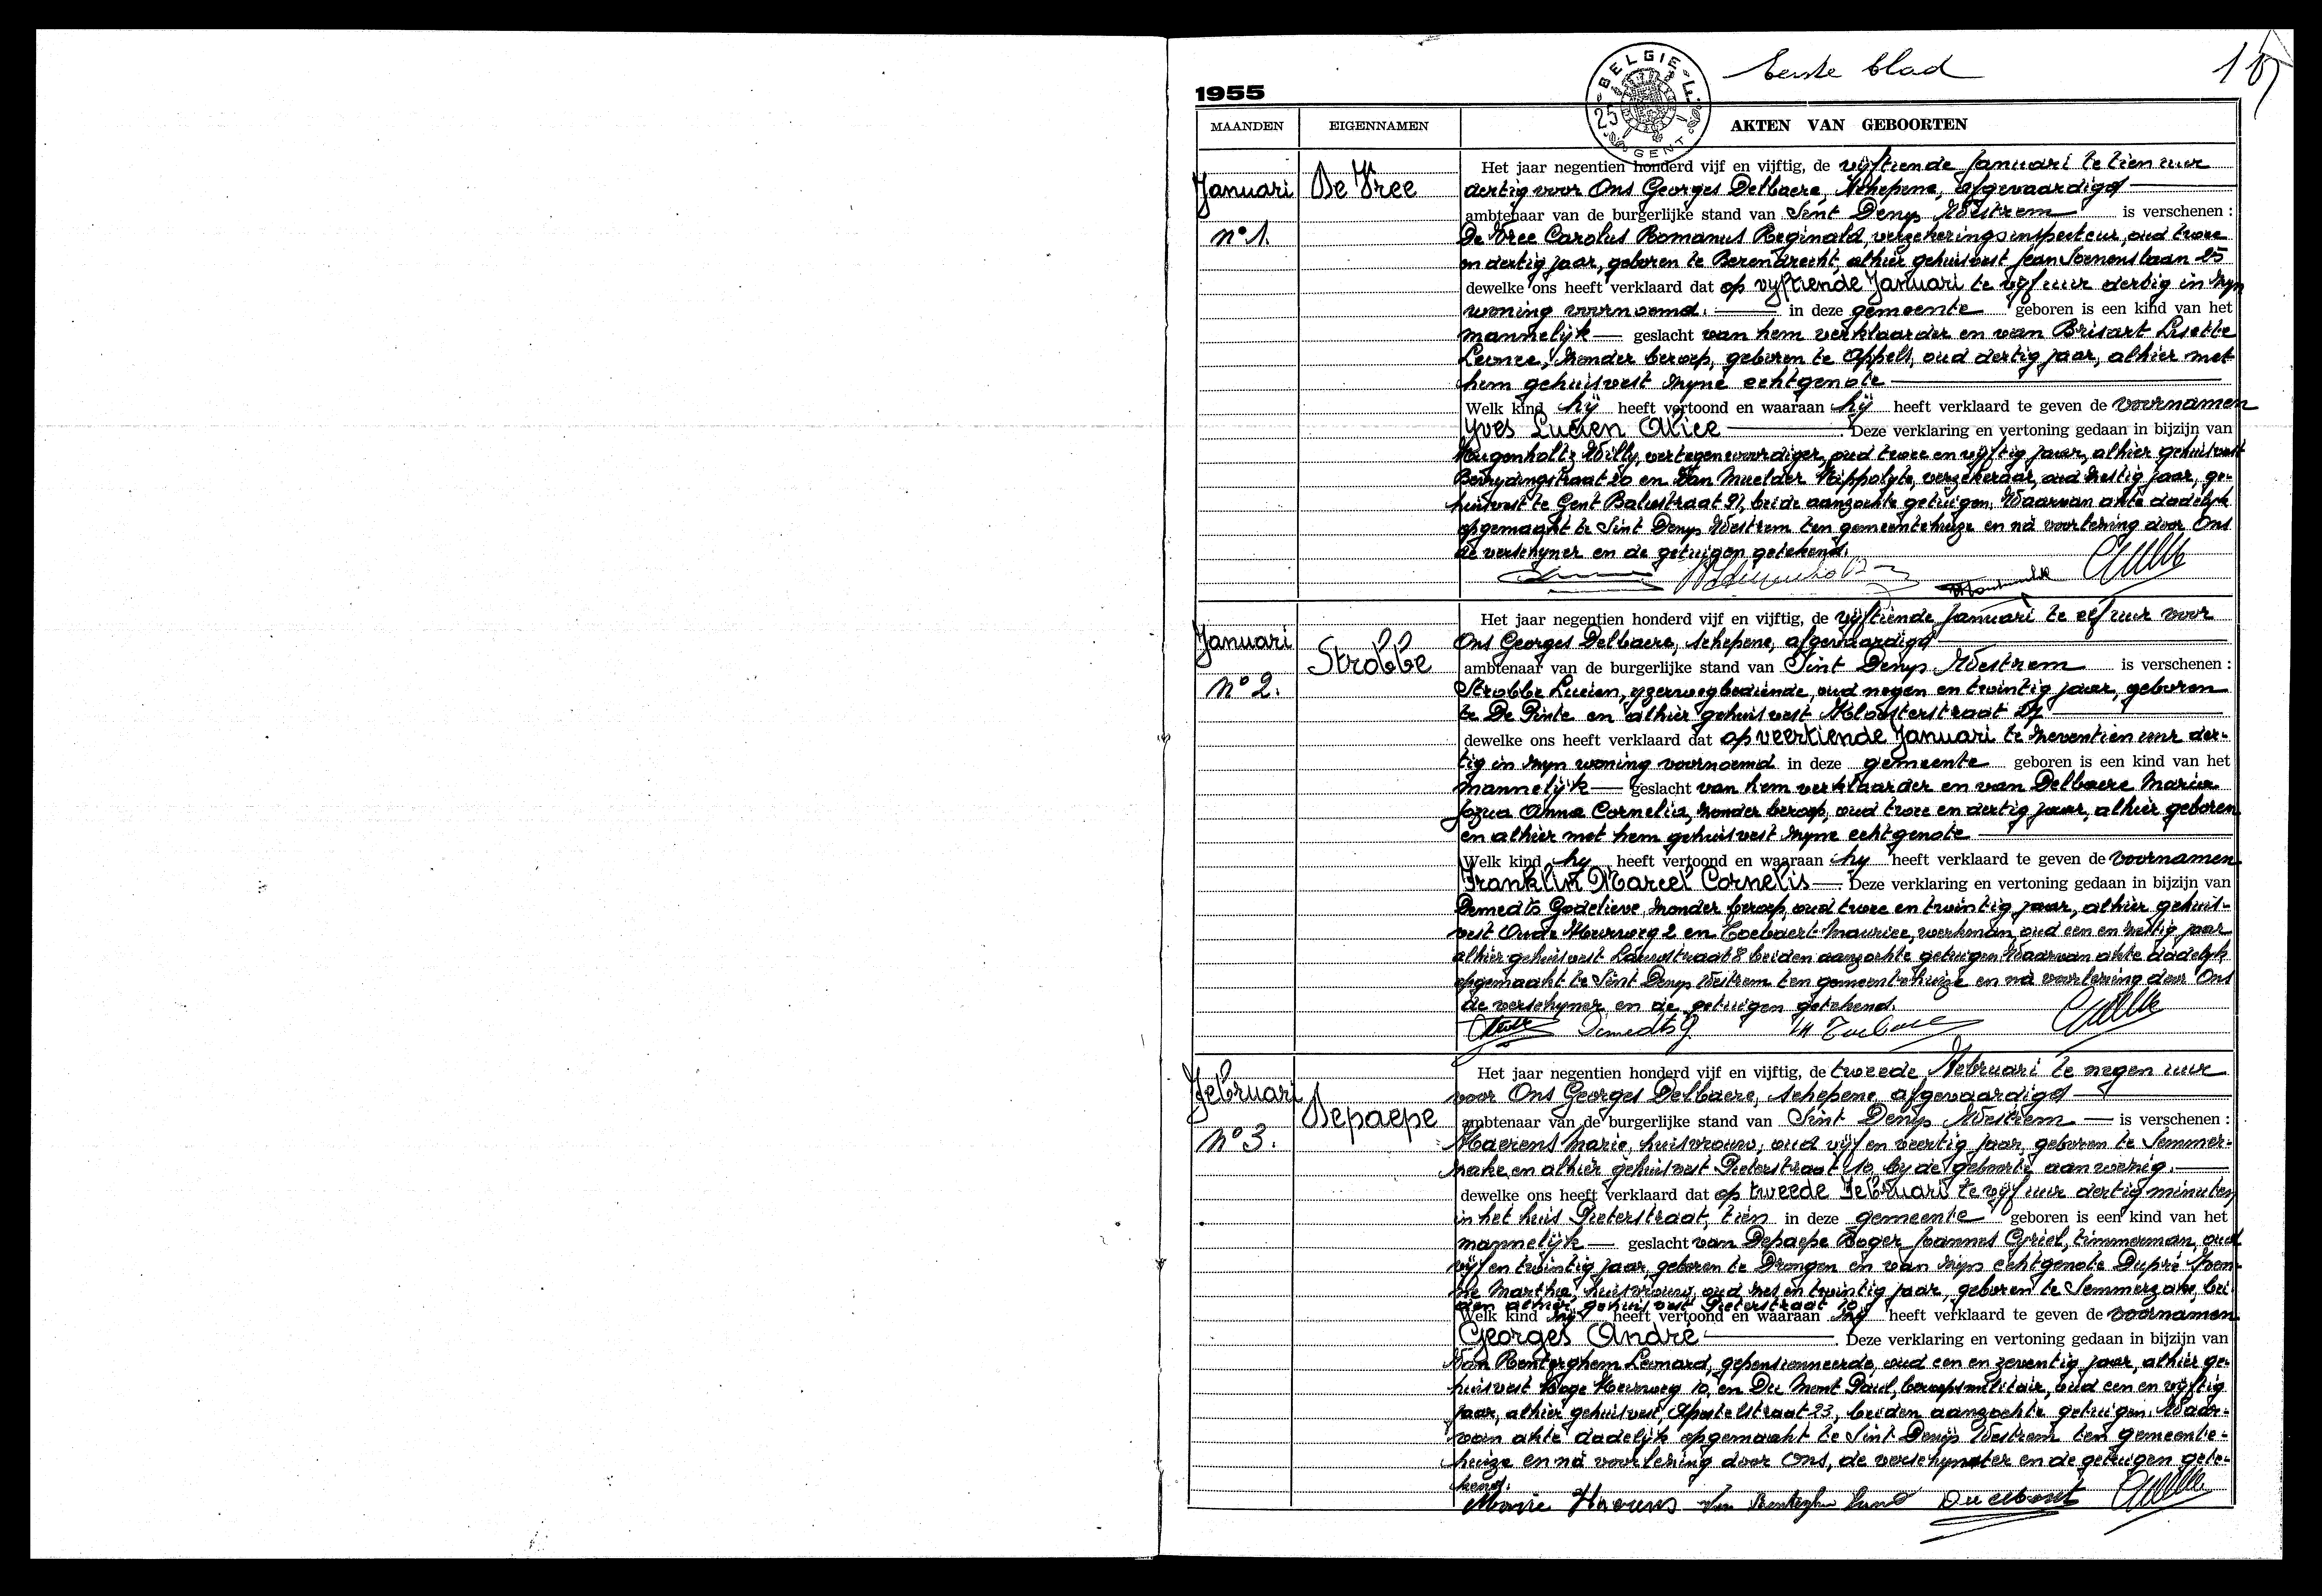 Eerste blad
1
1955
BELGIE
25 F
GENT
MAANDEN EIGENNAMEN AKTEN VAN GEBOORTEN
Januari
n° 1.
De Vree
Het jaar negentien honderd vijf en vijftig, de vijftiende Januari te tien uur
dertig voor Ons Georges Delbaere, Schepene, afgevaardigd
ambtenaar van de burgerlijke stand van Sint Denys Westrem is verschenen :
De Vree Carolus Romanus Reginald, verzekeringsinspecteur, oud twee
en dertig jaar, geboren te Berendrecht, alhier gehuisvest Jean 25
dewelke ons heeft verklaard dat op vyftiende Januari te vijf uur dertig in zyn
woning voornoemd. in deze gemeente geboren is een kind van het
mannelijk geslacht van hem verklaarder en van Brisart Lisette
Leonce, zonder beroep, geboren te Appels, oud dertig jaar, alhier met
hem gehuisvest zyne echtgenote
Welk kind hij heeft vertoond en waaraan hij heeft verklaard te geven de voornamen
Yves Lucien Alice Deze verklaring en vertoning gedaan in bijzijn van
Hugenholtz Willy, vertegenwoordiger, oud twee en vijftig jaar, alhier gehuisvest
Bevrydingstraat 20 en Van Muelder Hippolyte, verzekeraar, oud zestig jaar, ge-
huisvest te Gent 91, beide aanzochte getuigen. Waarvan akte dadelijk
opgemaakt te Sint Denys Westrem ten gemeentehuize en na voorlezing door Ons
de verschyner en de getuigen getekend.
Januari
n° 2.
Strobbe
Het jaar negentien honderd vijf en vijftig, de vijftiende Januari te elf uur voor
Ons Georges Delbaere, schepene, afgevaardigd
ambtenaar van de burgerlijke stand van Sint Denys Westrem is verschenen :
Strobbe Lucien, yzerwegbediende, oud negen en twintig jaar, geboren
te De Pinte en alhier gehuisvest Kloosterstraat 27
dewelke ons heeft verklaard dat op veertiende Januari te zeventien uur der-
tig in zyn woning voornoemd in deze gemeente geboren is een kind van het
mannelijk geslacht van hem verklaarder en van Delbaere Maria
Jozua Anna Cornelia, zonder beroep, oud twee en dertig jaar, alhier geboren
en alhier met hem gehuisvest zyne echtgenote
Welk kind hy heeft vertoond en waaraan hy heeft verklaard te geven de voornamen
Franklin Marcel Cornelis Deze verklaring en vertoning gedaan in bijzijn van
Demedts Godelieve, zonder beroep, oud twee en twintig jaar, alhier gehuis-
vest Oude Heirweg 2 en Toebaert Maurice, werkman, oud een en zestig jaar
alhier gehuisvest 8 beiden aanzochte getuigen Waarvan akte dadelyk
opgemaakt te Sint Denys Westrem ten gemeentehuize en na voorlezing door Ons
de verschyner en de getuigen getekend.
Demedts G
Februari
n° 3.
Depaepe
Het jaar negentien honderd vijf en vijftig, de tweede Februari te negen uur
voor Ons Georges Delbaere, schepene, afgevaardigd
ambtenaar van de burgerlijke stand van Sint Denijs Westrem is verschenen :
Haerens Marie, huisvrouw, oud vijf en veertig jaar, geboren te Semmer-
zake, en alhier gehuisvest Pieterstraat 10, by de geboorte aanwezig.
dewelke ons heeft verklaard dat op tweede Februari te vijf uur dertig minuten
in het huis Pieterstraat, tien in deze gemeente geboren is een kind van het
mannelijk geslacht van Depaepe Roger Joannes Cyriel, timmerman, oud
vijf en twintig jaar, geboren te Drongen en van zijn echtgenote Dupré
Martha, huisvrouw, oud zes en twintig jaar, geboren te Semmerzake, bei-
den alhier gehuisvest Pieterstraat 10
Welk kind zij heeft vertoond en waaraan zij heeft verklaard te geven de voornamen
Georges André Deze verklaring en vertoning gedaan in bijzijn van
Van Renterghem Leonard, gepensionneerde, oud een en zeventig jaar, alhier ge-
huisvest Hoge Heirweg 10, en Du Mont Paul, beroepsmilitair, oud een en vijftig
jaar, alhier gehuisvest, Apostelstraat 23, beiden aanzochte getuigen. Waar-
van akte dadelijk opgemaakt te Sint Denijs Westrem ten gemeente-
huize en na voorlezing door Ons, de verschynster en de getuigen gete-
kend.
Marie Haerens Du Mont